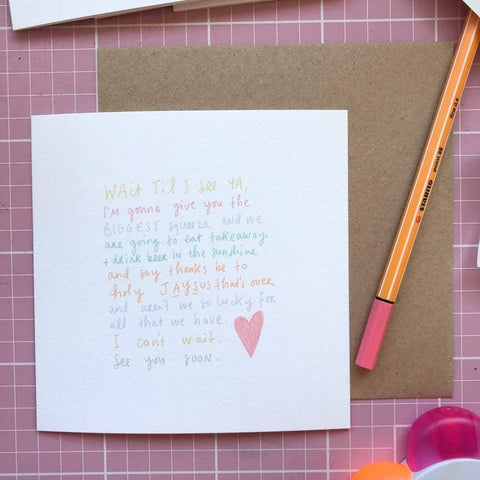 WAit Til I See YA,
I'm gonna give you the
BIGGEST squeeze and we
are going to eat takeaway
+ drink beer in the sunshine
and say thanks be to
holy JAYSUS that's over
and aren't we so lucky for
all that we have.
I can't wait.
See you soon.
STABILO point 88 fine 0.4